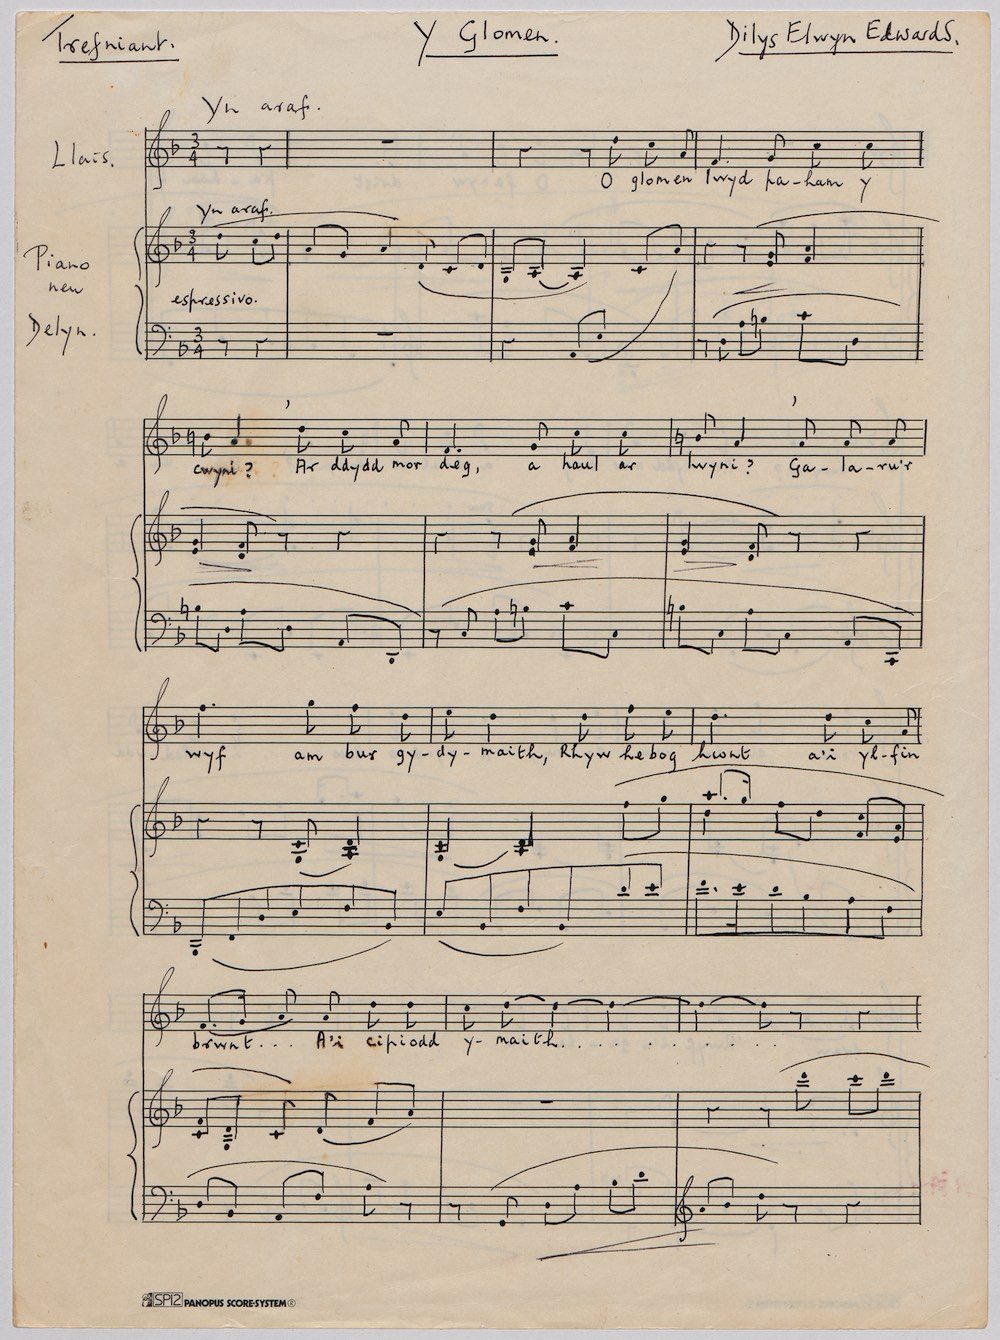 Trefniant. Y Glomen. Dilys Elwyn Edwards.
Yn araf.
Llais.
O glomen lwyd pa-ham y
Yn araf.
Piano
neu
Delyn.
espressivo.
cwyni? Ar ddydd mor deg, a haul ar lwyni? Ga-la-ru'r
wyf am bur gy-dy-maith, Rhyw hebog hwnt a'i yl-fin
brwnt... A'i cipiodd y-maith......
SP12 PANOPUS SCORE-SYSTEM ©